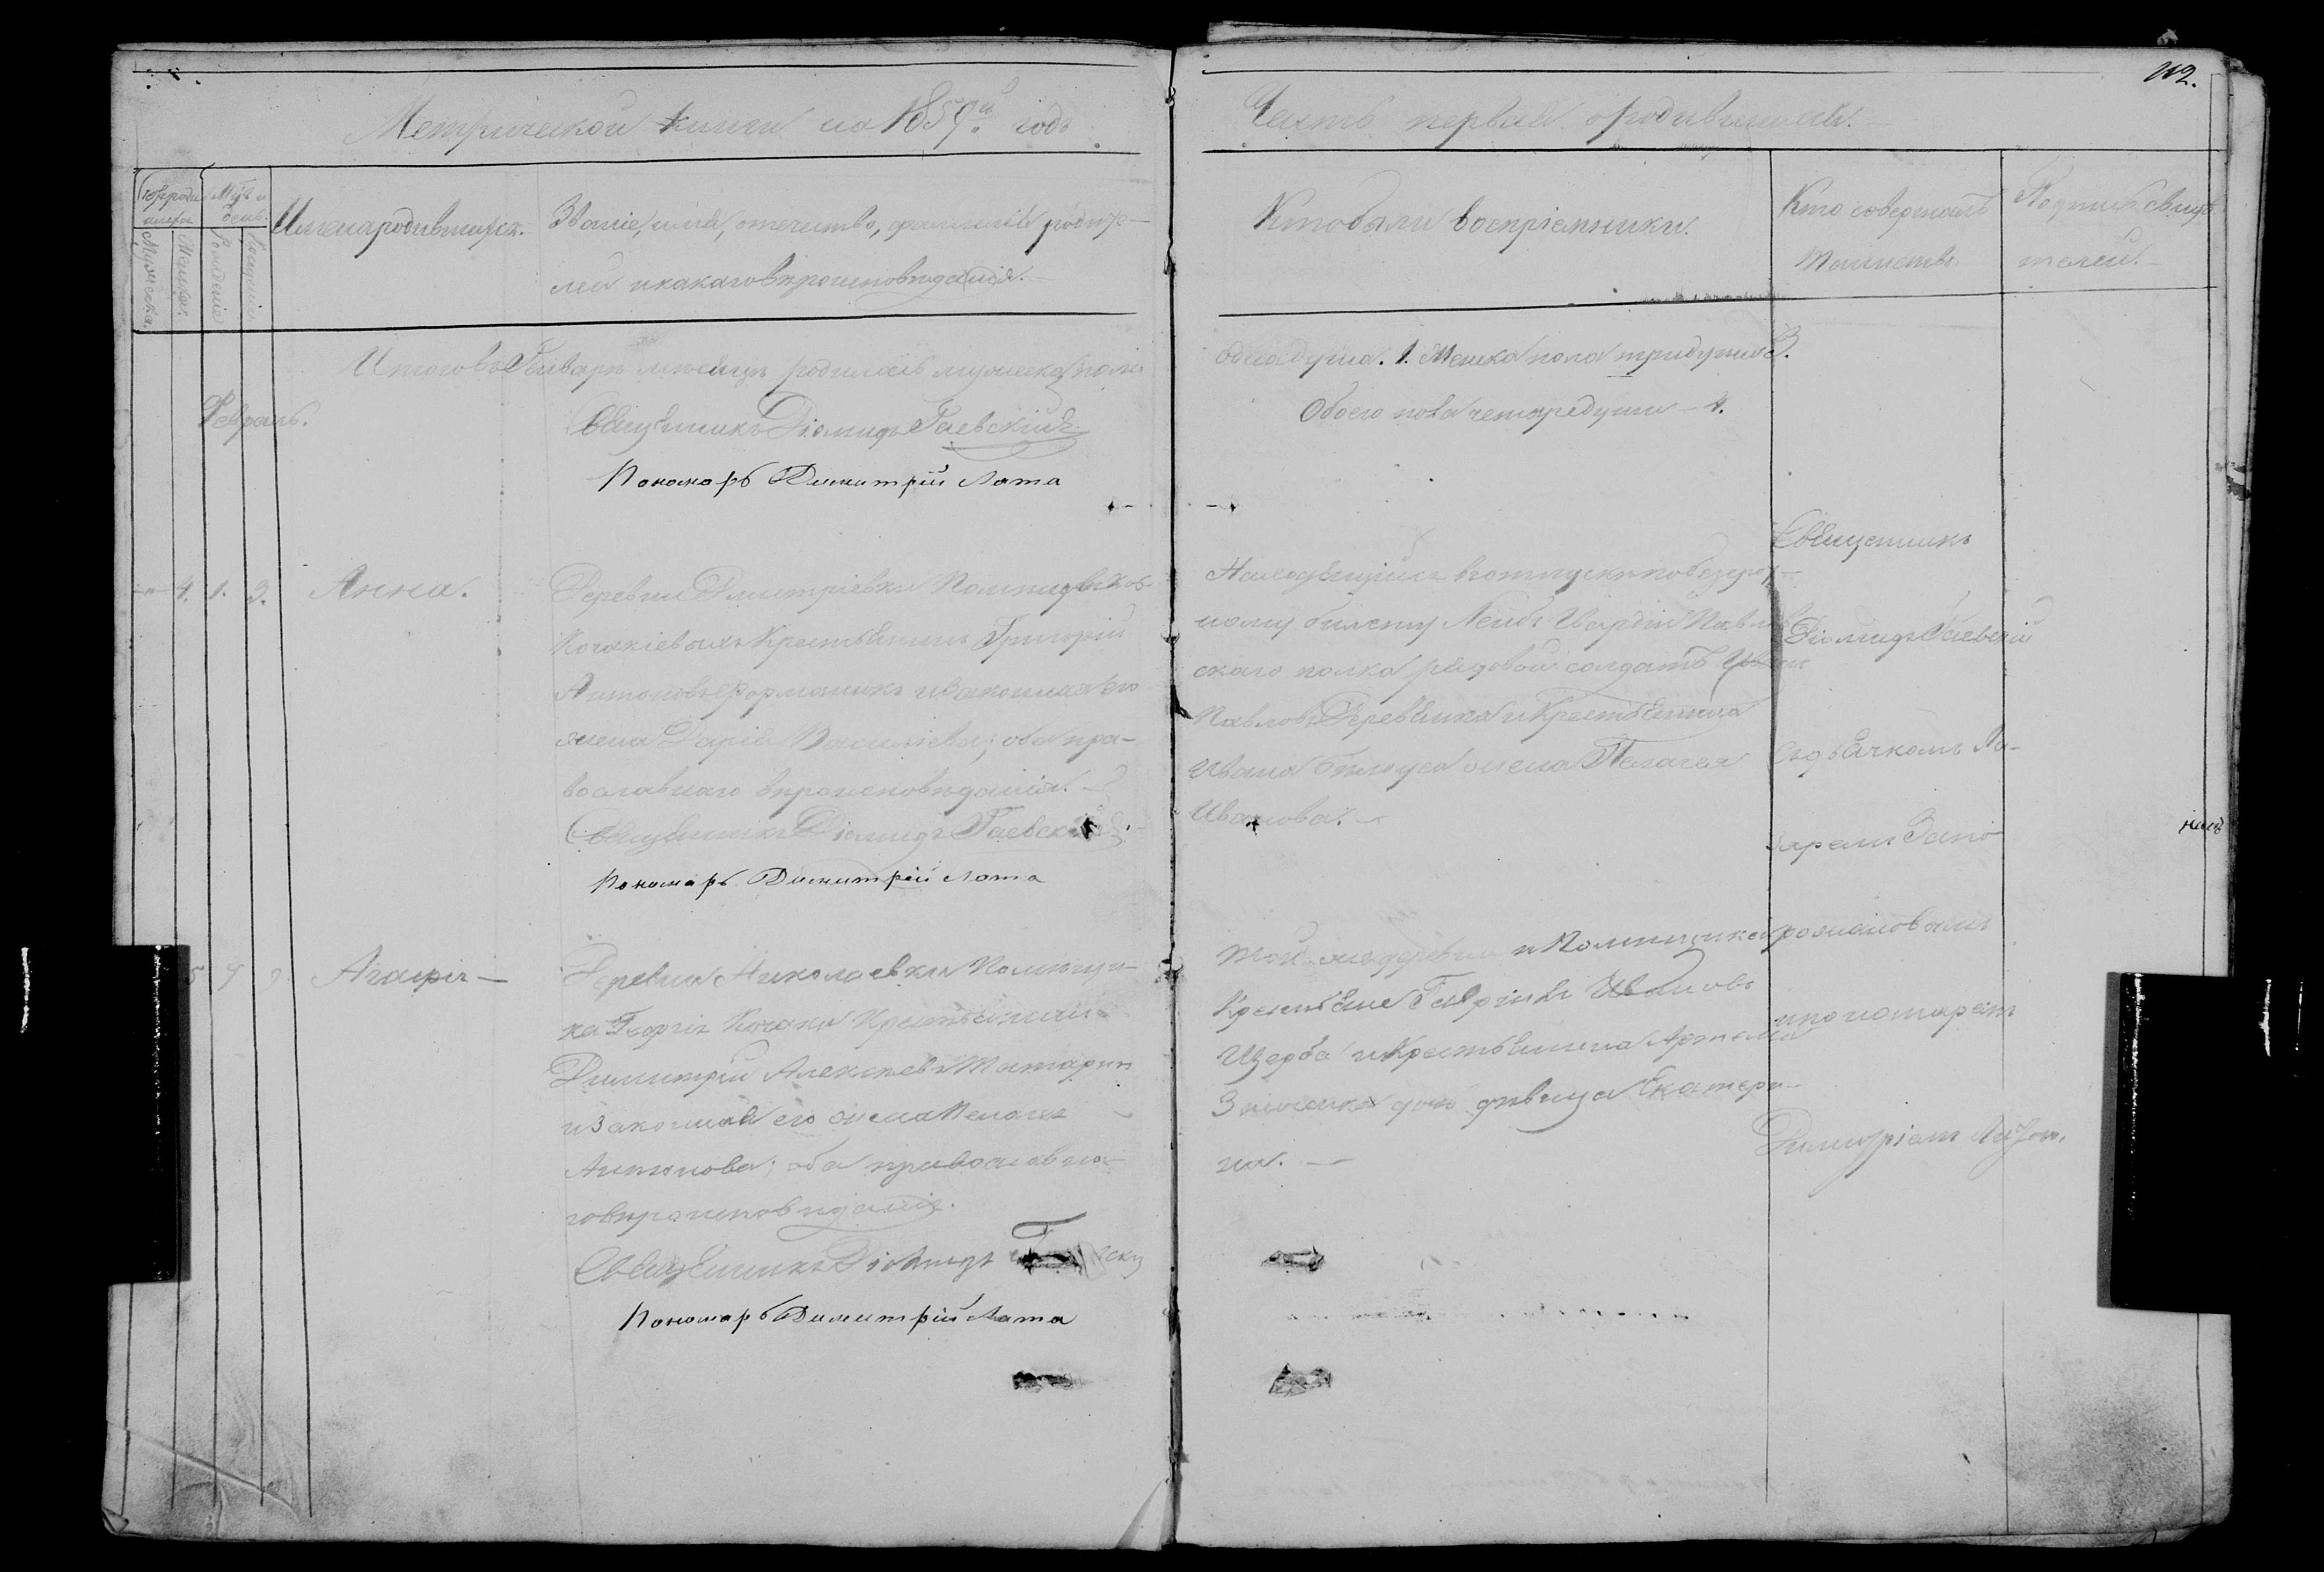 112.
Метрической книги на 1859й годъ
Часть первая о родившихся.
Мѣсяцъ и день.
Имена родившихся.
Званіе, имя, отечество, фамилія родите-
лей и какаго вѣроисповѣданія.
Кто были воспріемники.
Кто совершалъ
таинство.
Подпись свидѣ-
телей.
Мужеска.
Женска.
Рожденія
Крещенія
Итого въ Генварѣ мѣсяцѣ родилась мужеска пола
одна душа. 1. Женска пола три души 3.
Обоего пола четыре души - 4.
Февраль.
Священникъ Діомидъ Гаевскій
Пономарь Димитрій Лата
4. 1. 3. Анна.
Деревни Дмитріевки Помѣщиковъ
Кочакіевыхъ Крестьянинъ Григорій
Антоновъ Форманикъ и законная его
жена Дарія Василіева; оба пра-
вославнаго вѣроисповѣданія.
Священникъ Діомидъ Гаевскій
Пономарь Димитрій Лата
Находящійся въ отпуску по безсроч-
ному билету Лейбъ Гвардіи Павлов
скаго полка рядовой солдатъ Иванъ
Павловъ Деревянка и Крестьянина
Ивана Бѣлоуса жена Пелагея
Иванова.
Священникъ
Діомидъ Гаевскій
съ дьячкомъ Ла-
заремъ Запо
рожановымъ
и пономаремъ
Димитріемъ Латою.
5 9 Агафія
Деревни Николаевки Помѣщи-
ка Георгія Кочаки Крестьянинъ
Димитрій Алексѣевъ Татаринъ
и законная его жена Пелагея
Антонова; оба православна-
го вѣроисповѣданія.
Священникъ Діомидъ
Пономарь Димитрій Лата
Той же деревни и Помѣщика
Крестьяне Гавріилъ Ивановъ
Щерба и Крестьянина Артемія
дочь дѣвица Екатери-
на.